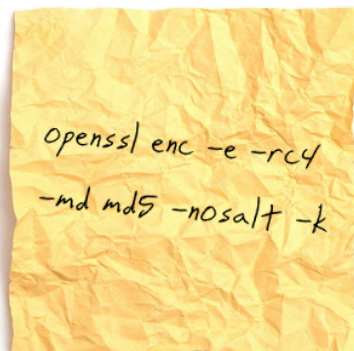 openssl enc -e -rc4
-md md5 -nosalt -k